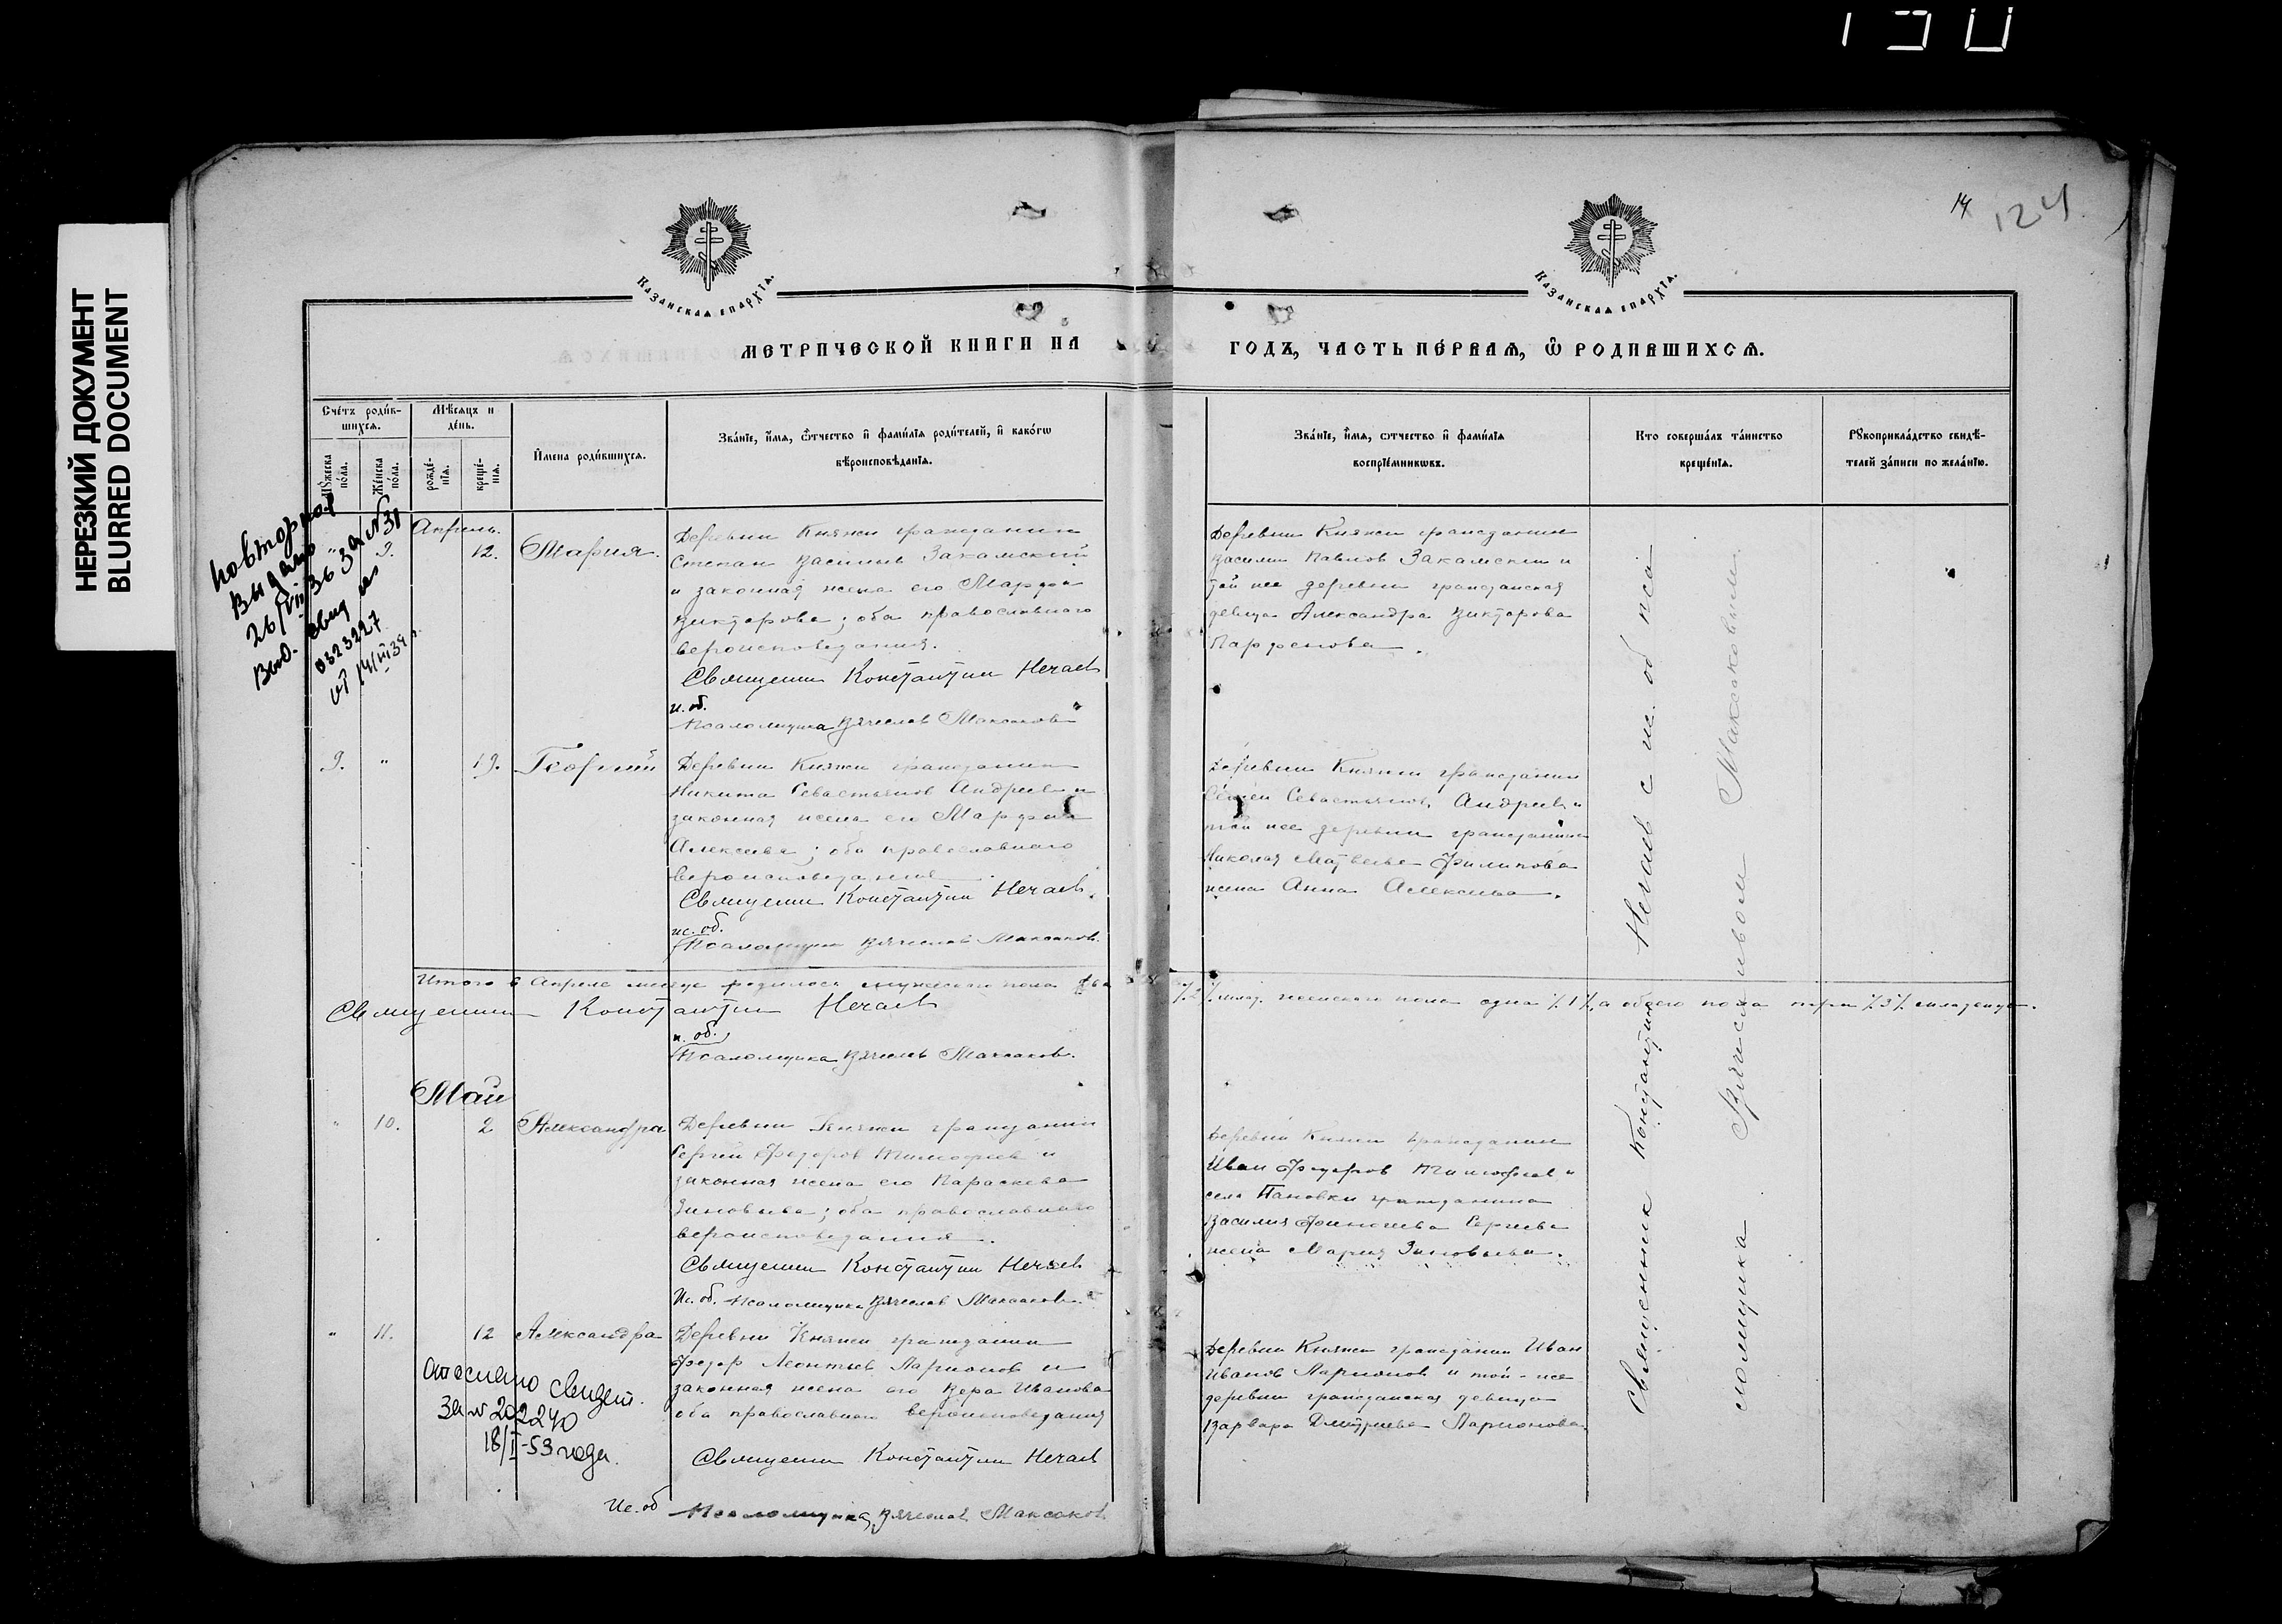 НЕРЕЗКИЙ ДОКУМЕНТ
BLURRED DOCUMENT
14
124
Казанская епархїа.
Казанская епархїа.
МЕТРИЧЕСКОЙ КНИГИ НА
ГОДЪ, ЧАСТЬ ПЕ́РВАѦ, Ѡ РОДИВШИХСѦ.
Сче́тъ роди́в-
шихсѧ.
Мѣ́сѧцъ и
де́нь.
Мꙋжеска
по́ла.
Же́нска
по́ла.
рожде́-
нїѧ.
креще́-
нїѧ.
И҆мена̀ роди́вшихсѧ.
Зва́нїе, и҆́мѧ, ѻ҆́тчество и҆ фами́лїѧ роди́телей, и҆ како́гѡ
вѣроисповѣ́данїѧ.
Зва́нїе, и҆́мѧ, ѻ҆́тчество и҆ фами́лїѧ
воспрїе́мникѡвъ.
Кто̀ соверша́лъ та́инство
креще́нїѧ.
Рꙋкоприкла́дство свидѣ́-
телей за́писи по жела́нїю.
повторно
выдано
26/VII 36 за N31
Выд. свид
0323227
от 14/III 39 г.
Апрель.
" 9. 12. Мария.
Деревни Княжи гражданин
Степан Васильев Закамский
и законная жена его Марфа
Викторова; оба православного
вероисповедания.
Священник Константин Нечаев
и. об.
Псаломщика Вячеслав Максаков
Деревни Княжи гражданин
Василий Павлов Закамский и
той же деревни гражданская
девица Александра Викторова
Парфенова.
9. " 19. Георгий
Деревни Княжи гражданин
Никита Севастьянов Андреев и
законная жена его Марфа
Алексеева; оба православного
вероисповедания.
Священник Константин Нечаев.
ис. об.
Псаломщика Вячеслав Максаков.
Деревни Княжи гражданин
Севастьянов Андреев и
той же деревни гражданина
Николая Матвеева Филипова
жена Анна Алексеева.
Итого в Апреле месяце родилось мужского пола два /2/ млад. женского пола одна /1/, а обоего пола три /3/ младенца.
Священник Константин Нечаев
и. об.
Псаломщика Вячеслав Максаков.
Май
" 10. 2 Александра
Деревни Княжи гражданин
Сергей Федоров Тимофеев и
законная жена его Параскева
Зиновьева; оба православного
вероисповедания.
Священник Константин Нечаев
Ис. об. Псаломщика Вячеслав Максаков.
Деревни Княжи гражданин
Иван Федоров Тимофеев и
села Пановки гражданина
Василия Сергеева
жена Мария Зиновьева.
" 11. 12 Александра
Деревни Княжи гражданин
Федор Леонтьев Ларионов и
законная жена его Вера Иванова
оба православного вероисповедания
Священник Константин Нечаев
Ис. об Псаломщика Вячеслав Максаков
Деревни Княжи гражданин Иван
Иванов Ларионов и той-же
деревни гражданская девица
Варвара Дмитриева Ларионова.
Отослано свидет.
за № 202240
18/I-53 года.
Священник Константин Нечаев с и. об пса
ломщика Вячеславом Максаковым.